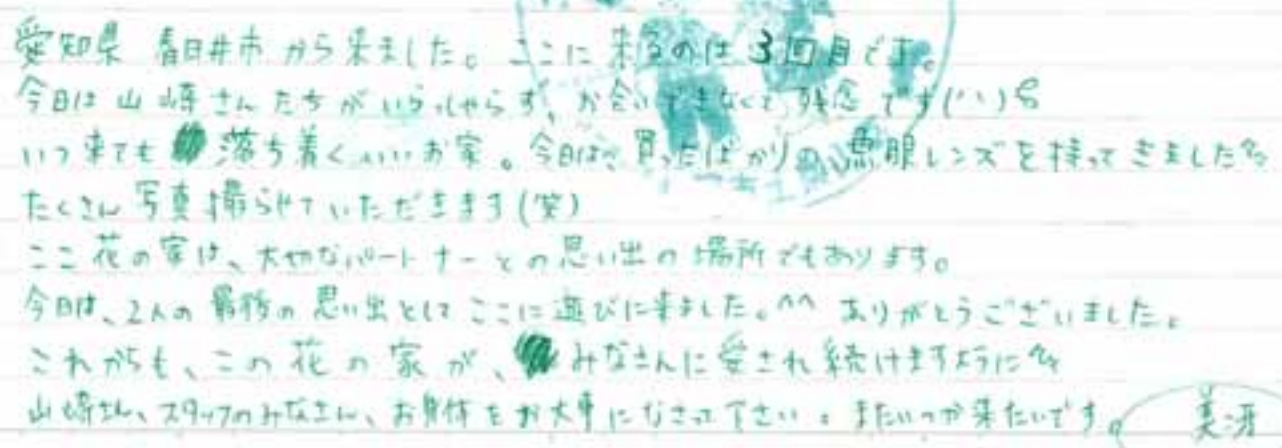 愛知県 春日井市から来ました。ここに来るのは3回目です。
今日は山﨑さんたちがいらっしゃらず、お会いできなくて残念です(´`)
いつ来ても落ち着くいいお家。今日は、買ったばかりの魚眼レンズを持ってきました
たくさん写真撮らせていただきます(笑)
ここ花の家は、大切なパートナーとの思い出の場所でもあります。
今日は、2人の最後の思い出としてここに遊びに来ました。^^ ありがとうございました。
これからも、この花の家が、みなさんに愛され続けますように
山﨑さん、スタッフのみなさん、お身体をお大事になさって下さい。またいつか来たいです。 美冴